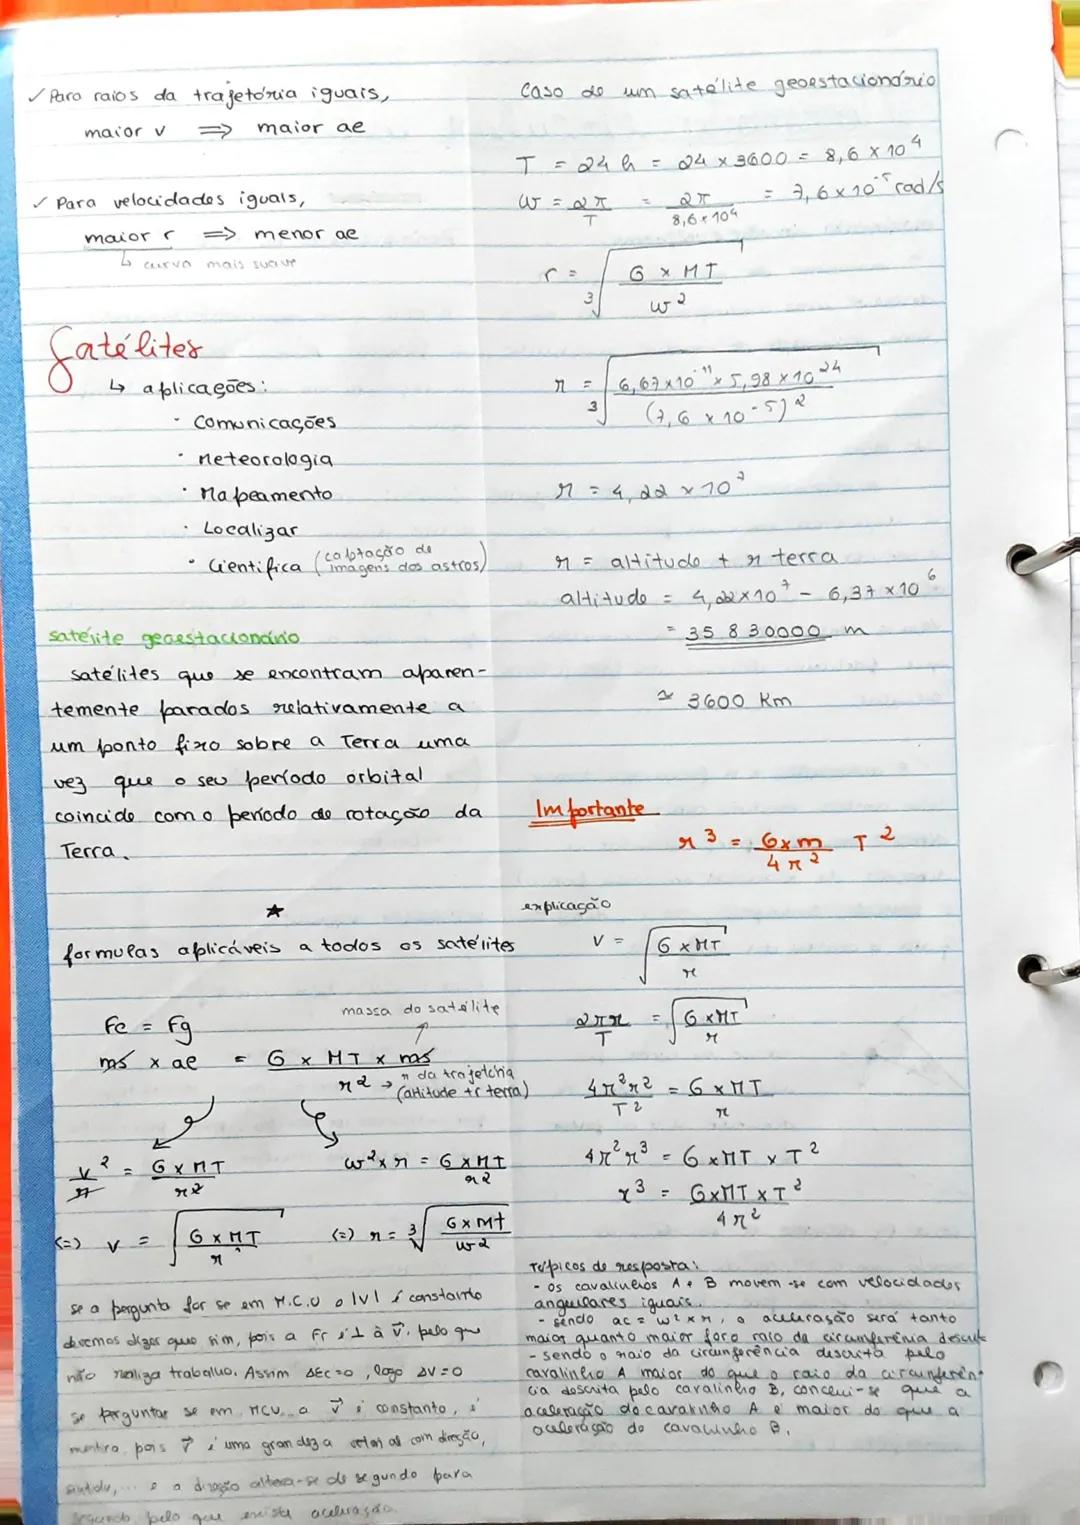 ✓ Para raios da trajetória iguais,
maior v ⇒ maior ae
✓ Para velocidades iguais,
maior r ⇒ menor ae
↳ curva mais suave
Satélites
↳ aplicações:
· Comunicações
· Meteorologia
· Mapeamento
· Localizar
· Científica (captação de imagens dos astros)
satélite geoestacionário
satélites que se encontram aparen-
temente parados relativamente a
um ponto fixo sobre a Terra uma
vez que o seu período orbital
coincide com o período de rotação da
Terra.
☆
formulas aplicáveis a todos os satélites
Fc = Fg
massa do satélite
ms x ae = G x MT x ms / r²
→ r da trajetória
(altitude + r terra)
v²/r = G x MT / r²
w² x r = G x MT / r²
(=) v = √(G x MT / r)
(=) r = ³√(G x Mt / w²)
se a pergunta for se em M.C.U o |v| é constante
devemos dizer que sim, pois a Fr é ⊥ à v⃗, pelo que
não realiza trabalho. Assim ΔEc=0, logo ΔV=0
se perguntar se em MCU... a v⃗ é constante, é
mentira, pois v⃗ é uma grandeza vetorial com direção,
sentido,... e a direção altera-se de segundo para
segundo, pelo que existe aceleração.
Caso de um satélite geoestacionário
T = 24 h = 24 x 3600 = 8,6 x 10⁴
w = 2π/T = 2π / 8,6 x 10⁴ = 7,6 x 10⁻⁵ rad/s
r = ³√(G x MT / w²)
r = ³√(6,67 x 10⁻¹¹ x 5,98 x 10²⁴ / (7,6 x 10⁻⁵)²)
r = 4,22 x 10⁷
r = altitude + r terra
altitude = 4,22 x 10⁷ - 6,37 x 10⁶
= 35 830000 m
≃ 3600 Km
Importante
r³ = G x m / 4π² T²
explicação
v = √(G x MT / r)
2πr / T = √(G x MT / r)
4π²r² / T² = G x MT / r
4π²r³ = G x MT x T²
r³ = G x MT x T² / 4π²
Tópicos de resposta:
- os cavalinhos A e B movem-se com velocidades
angulares iguais.
- sendo ac = w² x r, a aceleração será tanto
maior quanto maior for o raio da circunferência descrita
- sendo o raio da circunferência descrita pelo
cavalinho A maior do que o raio da circunferên-
cia descrita pelo cavalinho B, conclui-se que a
aceleração do cavalinho A é maior do que a
aceleração do cavalinho B.